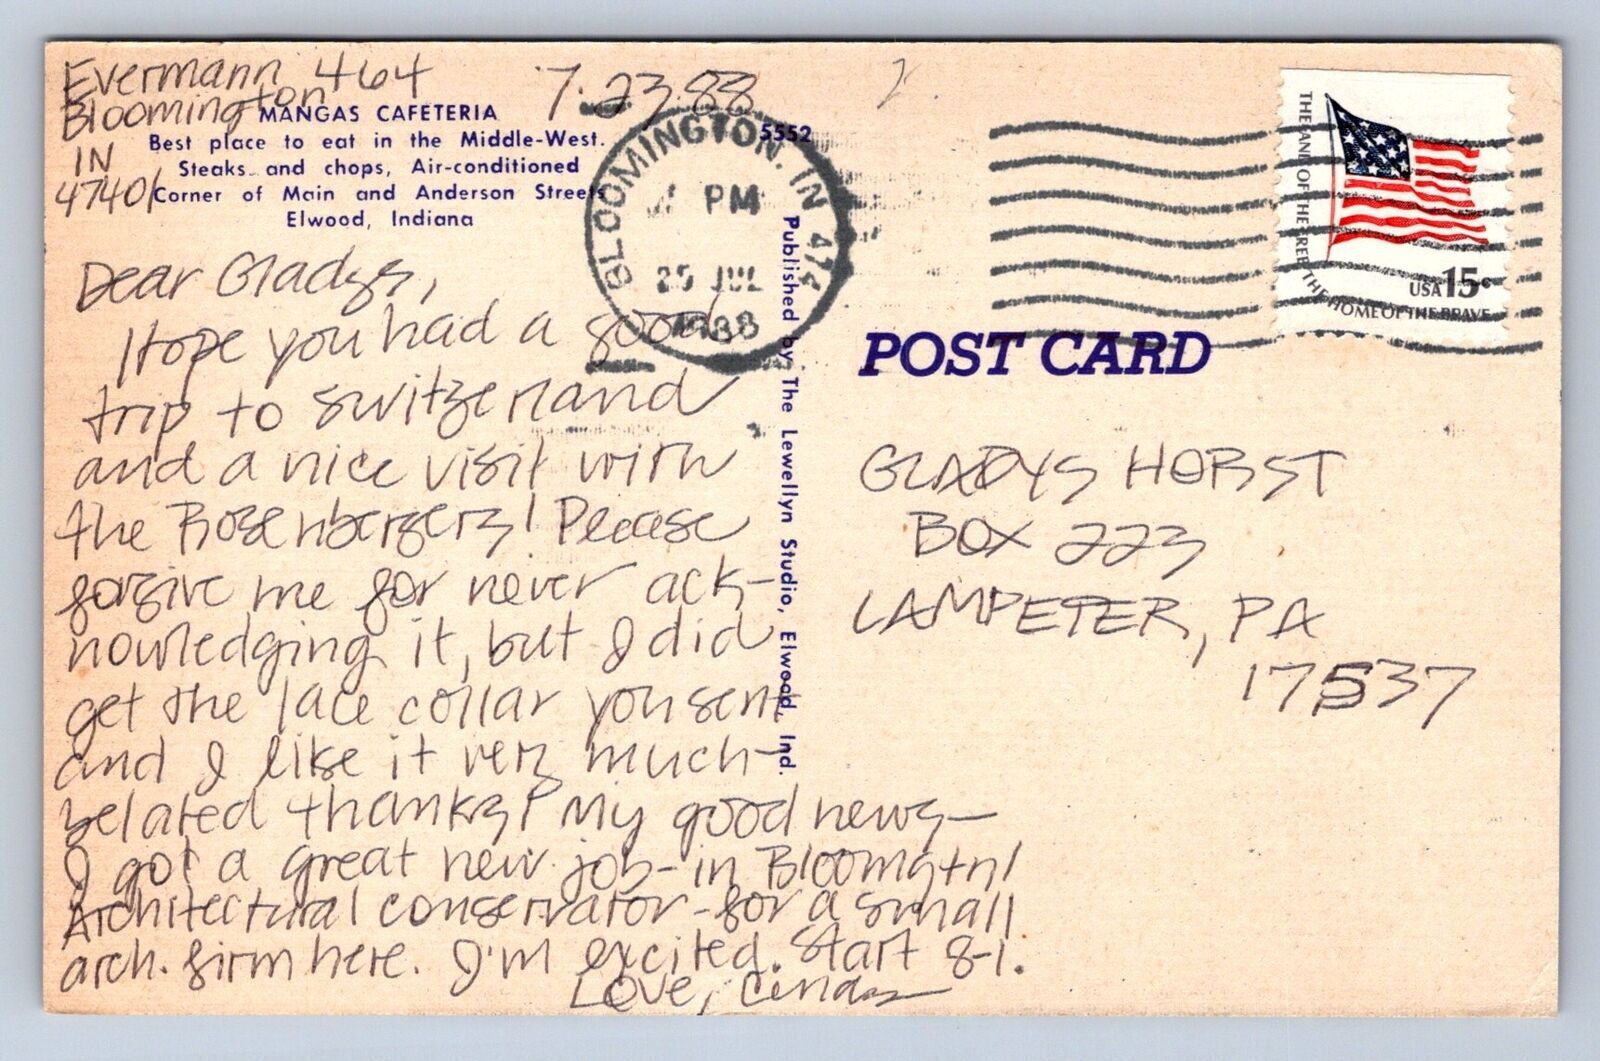 Evermann 464
Bloomington
IN
47401
7-23-88
MANGAS CAFETERIA
Best place to eat in the Middle-West.
Steaks and chops, Air-conditioned
Corner of Main and Anderson Streets
Elwood, Indiana
5552
BLOOMINGTON, IN 474
PM
25 JUL
1988
THE LAND OF THE FREE THE HOME OF THE BRAVE
USA 15c
Published by The Lewellyn Studio, Elwood, Ind.
POST CARD
Dear Gladys,
Hope you had a good
trip to Switzerland
and a nice visit with
the Rosenbergers! Please
forgive me for never ack-
nowledging it, but I did
get the lace collar you sent
and I like it very much-
belated thanks! My good news-
I got a great new job-in Bloomgtn!
Architectural conservator-for a small
arch. firm here. I'm excited. Start 8-1.
Love,
GLADYS HORST
BOX 223
LAMPETER, PA
17537